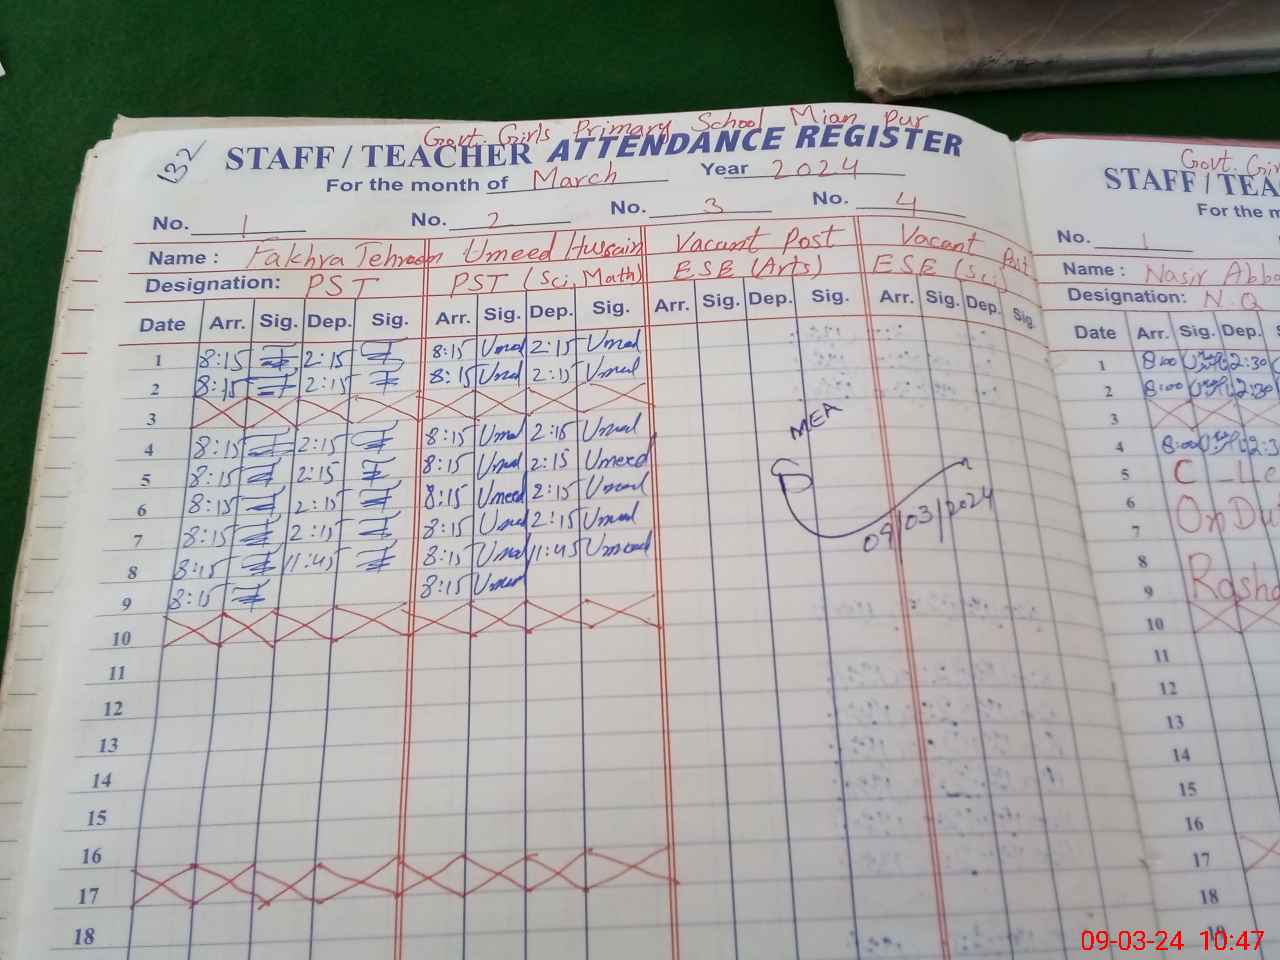 Govt. Girls Primary School Mian Pur
132
STAFF / TEACHER ATTENDANCE REGISTER
For the month of March Year 2024
No. 1 No. 2 No. 3 No. 4
Name : Fakhra Tehreem Umeed Hussain Vacant Post Vacant Post
Designation: PST PST (Sci, Math) ESE (Arts) ESE (Sci)
Date Arr. Sig. Dep. Sig. Arr. Sig. Dep. Sig. Arr. Sig. Dep. Sig. Arr. Sig. Dep. Sig.
1 8:15 2:15 8:15 Umed 2:15 Umed
2 8:15 2:15 8:15 Umed 2:15 Umed
3
4 8:15 2:15 8:15 Umed 2:15 Umed
5 8:15 2:15 8:15 Umed 2:15 Umeed
6 8:15 2:15 8:15 Umeed 2:15 Umed
7 8:15 2:15 8:15 Umed 2:15 Umed
8 8:15 11:45 8:15 Umed 11:45 Umeed
9 8:15 8:15 Umed
10
11
12
13
14
15
16
17
18
MEA
09/03/2024
Govt. Gir
STAFF / TEA
For the m
No. 1
Name : Nasir Abba
Designation: N.Q
Date Arr. Sig. Dep.
1 8:00 2:30
2 8:00 2:30
3
4 8:00 2:3
5 C - Le
6
7 On Du
8
9 Rasha
10
11
12
13
14
15
16
17
18
19
09-03-24 10:47